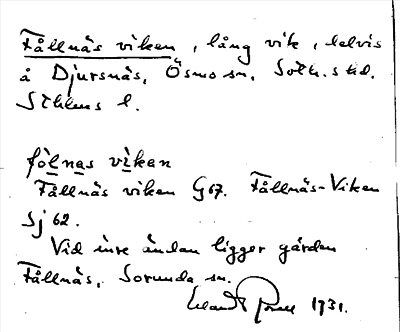 Fållnäs viken, lång vik, delvis
å Djursnäs, Ösmo sn. Soth. skd.
Sthlms l.
fòlnas vìkan
Fållnäs viken G67. Fållnäs-Viken
Sj 62.
Vid inre ändan ligger gården
Fållnäs, Sorunda sn.
Erland Rosell 1931.